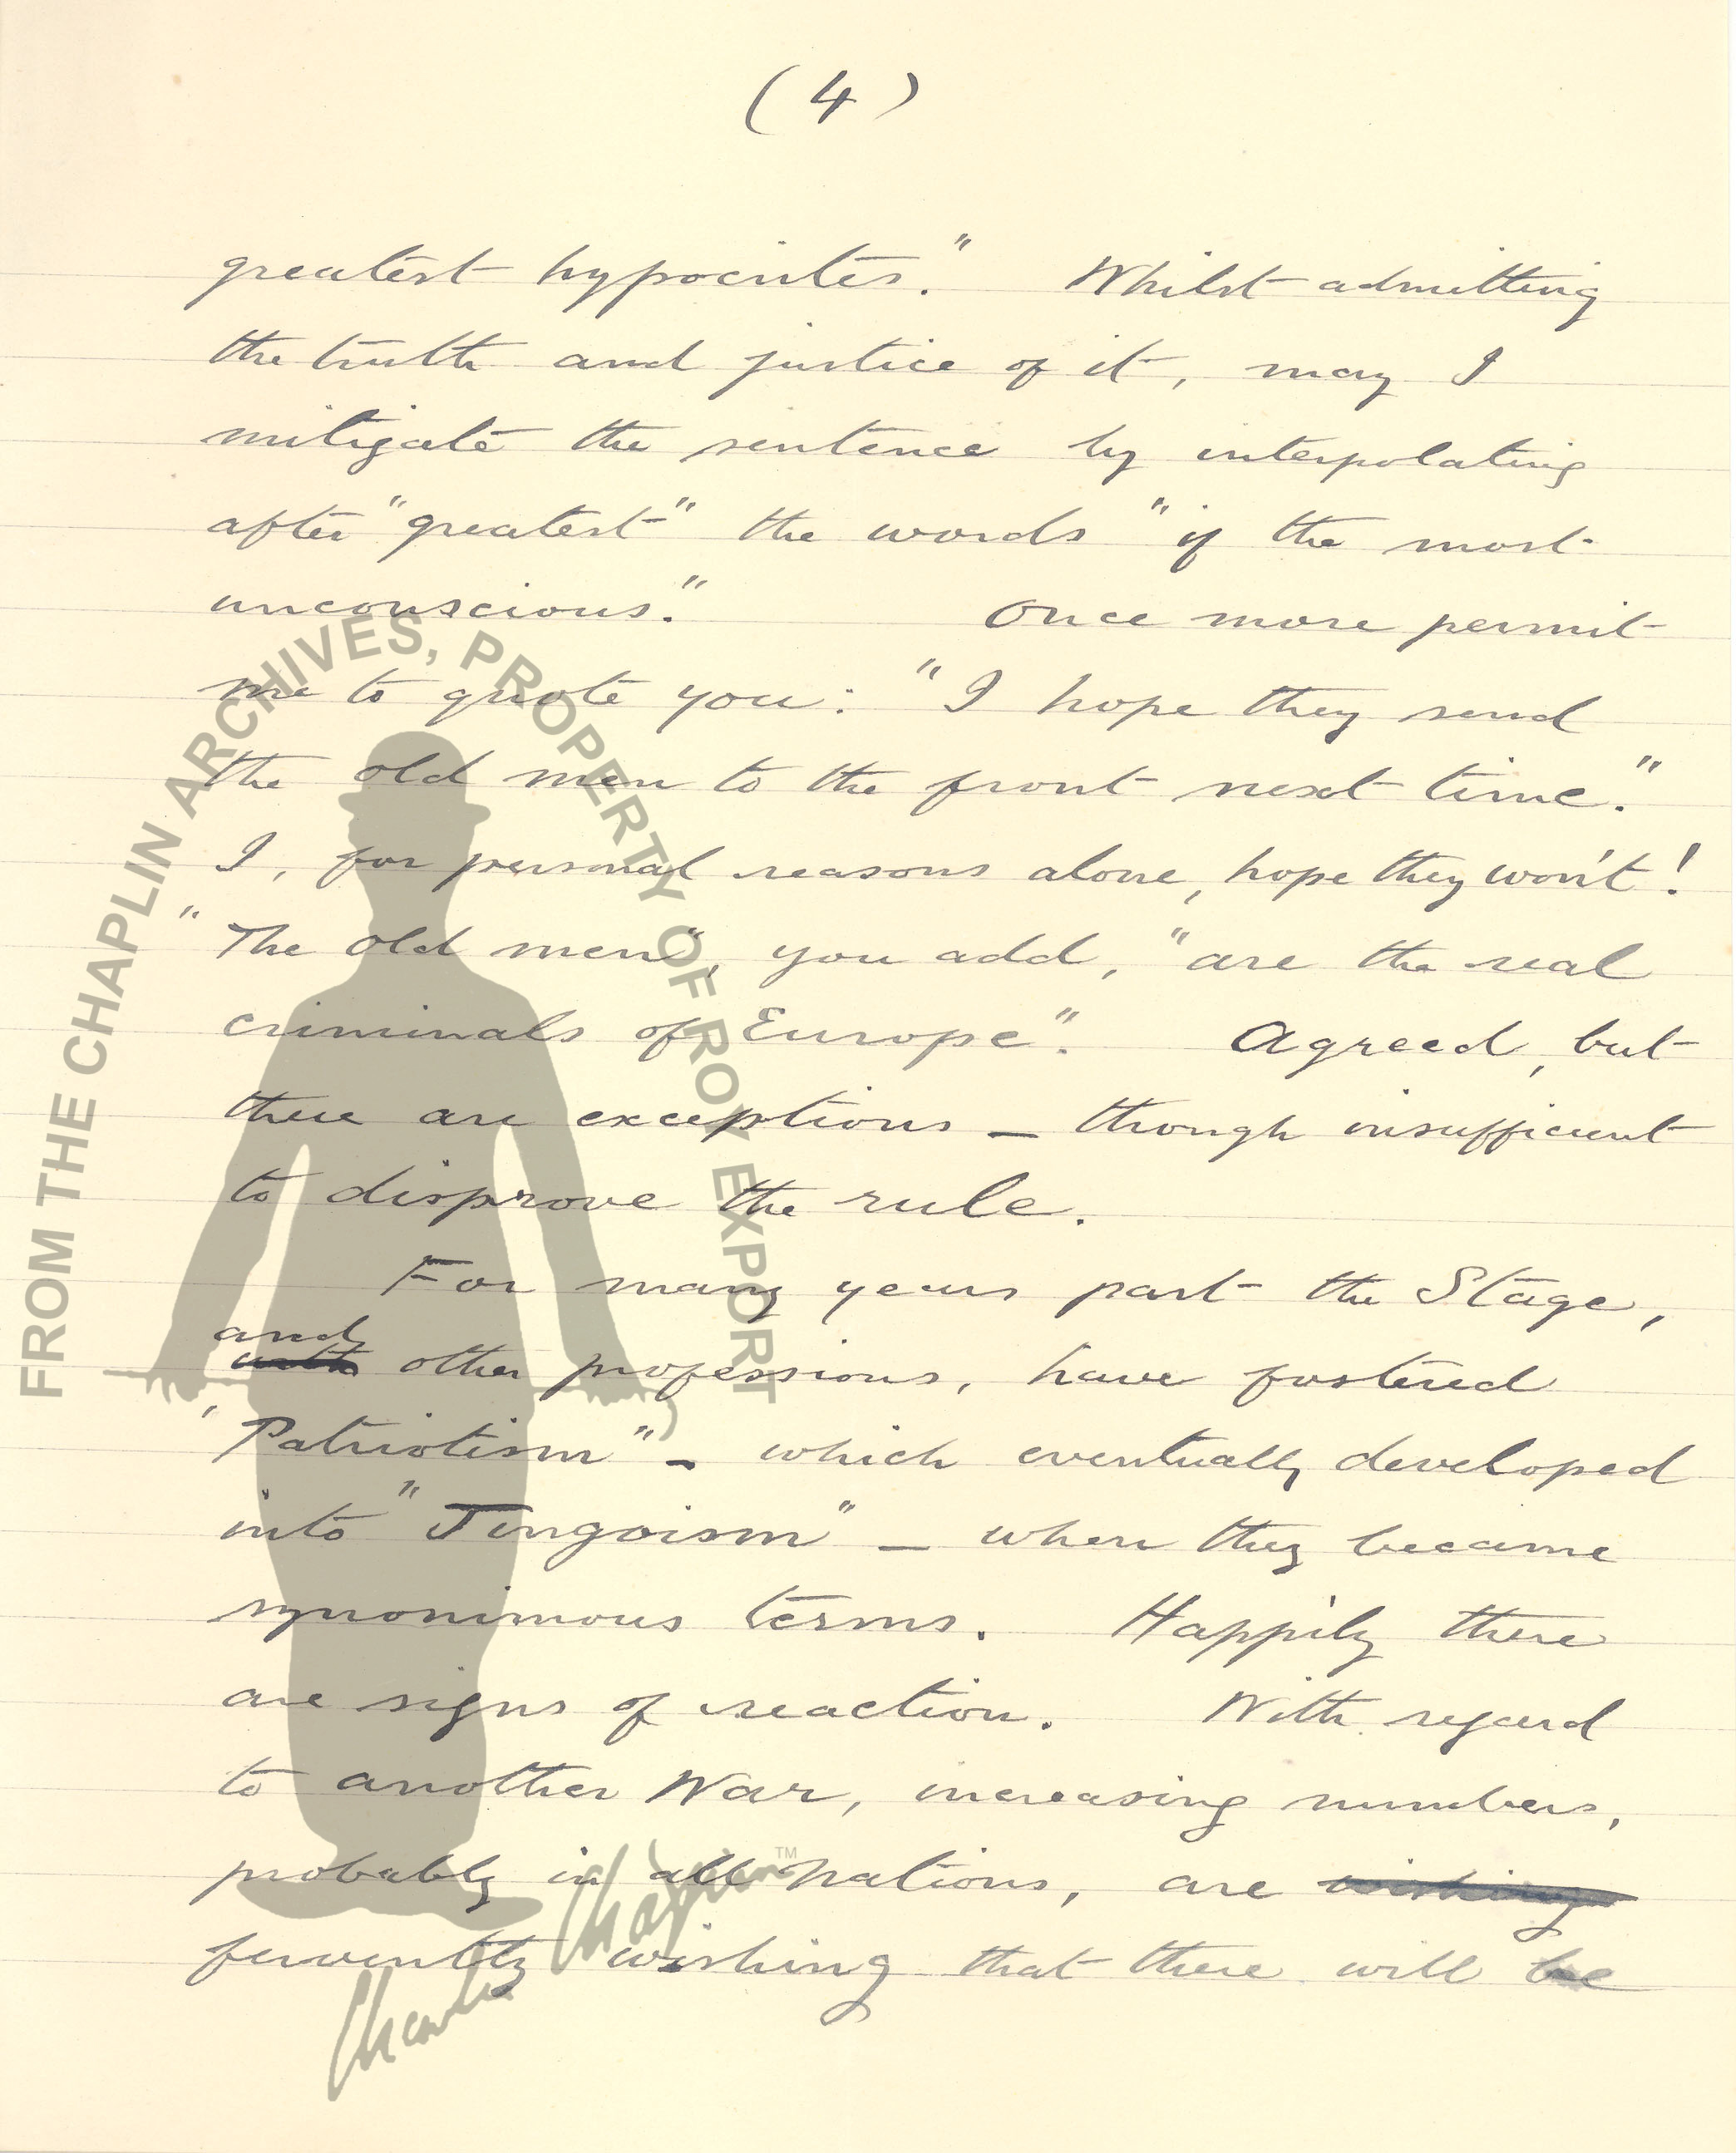 (4)
greatest hypocrites." Whilst admitting
the truth and justice of it, may I
mitigate the sentence by interpolating
after "greatest" the words "if the most
unconscious." Once more permit
me to quote you: "I hope they send
the old men to the front next time."
I, for personal reasons alone, hope they won't!
"The old men", you add, "are the real
criminals of Europe". Agreed, but
there are exceptions – though insufficient
to disprove the rule.
For many years past the Stage,
and
with other professions, have fostered
"Patriotism" – which eventually developed
into "Jingoism" – when they became
synonimous terms. Happily there
are signs of reaction. With regard
to another War, increasing numbers,
probably in all nations, are wishing
fervently wishing that there will be
FROM THE CHAPLIN ARCHIVES, PROPERTY OF ROY EXPORT
Charlie Chaplin™